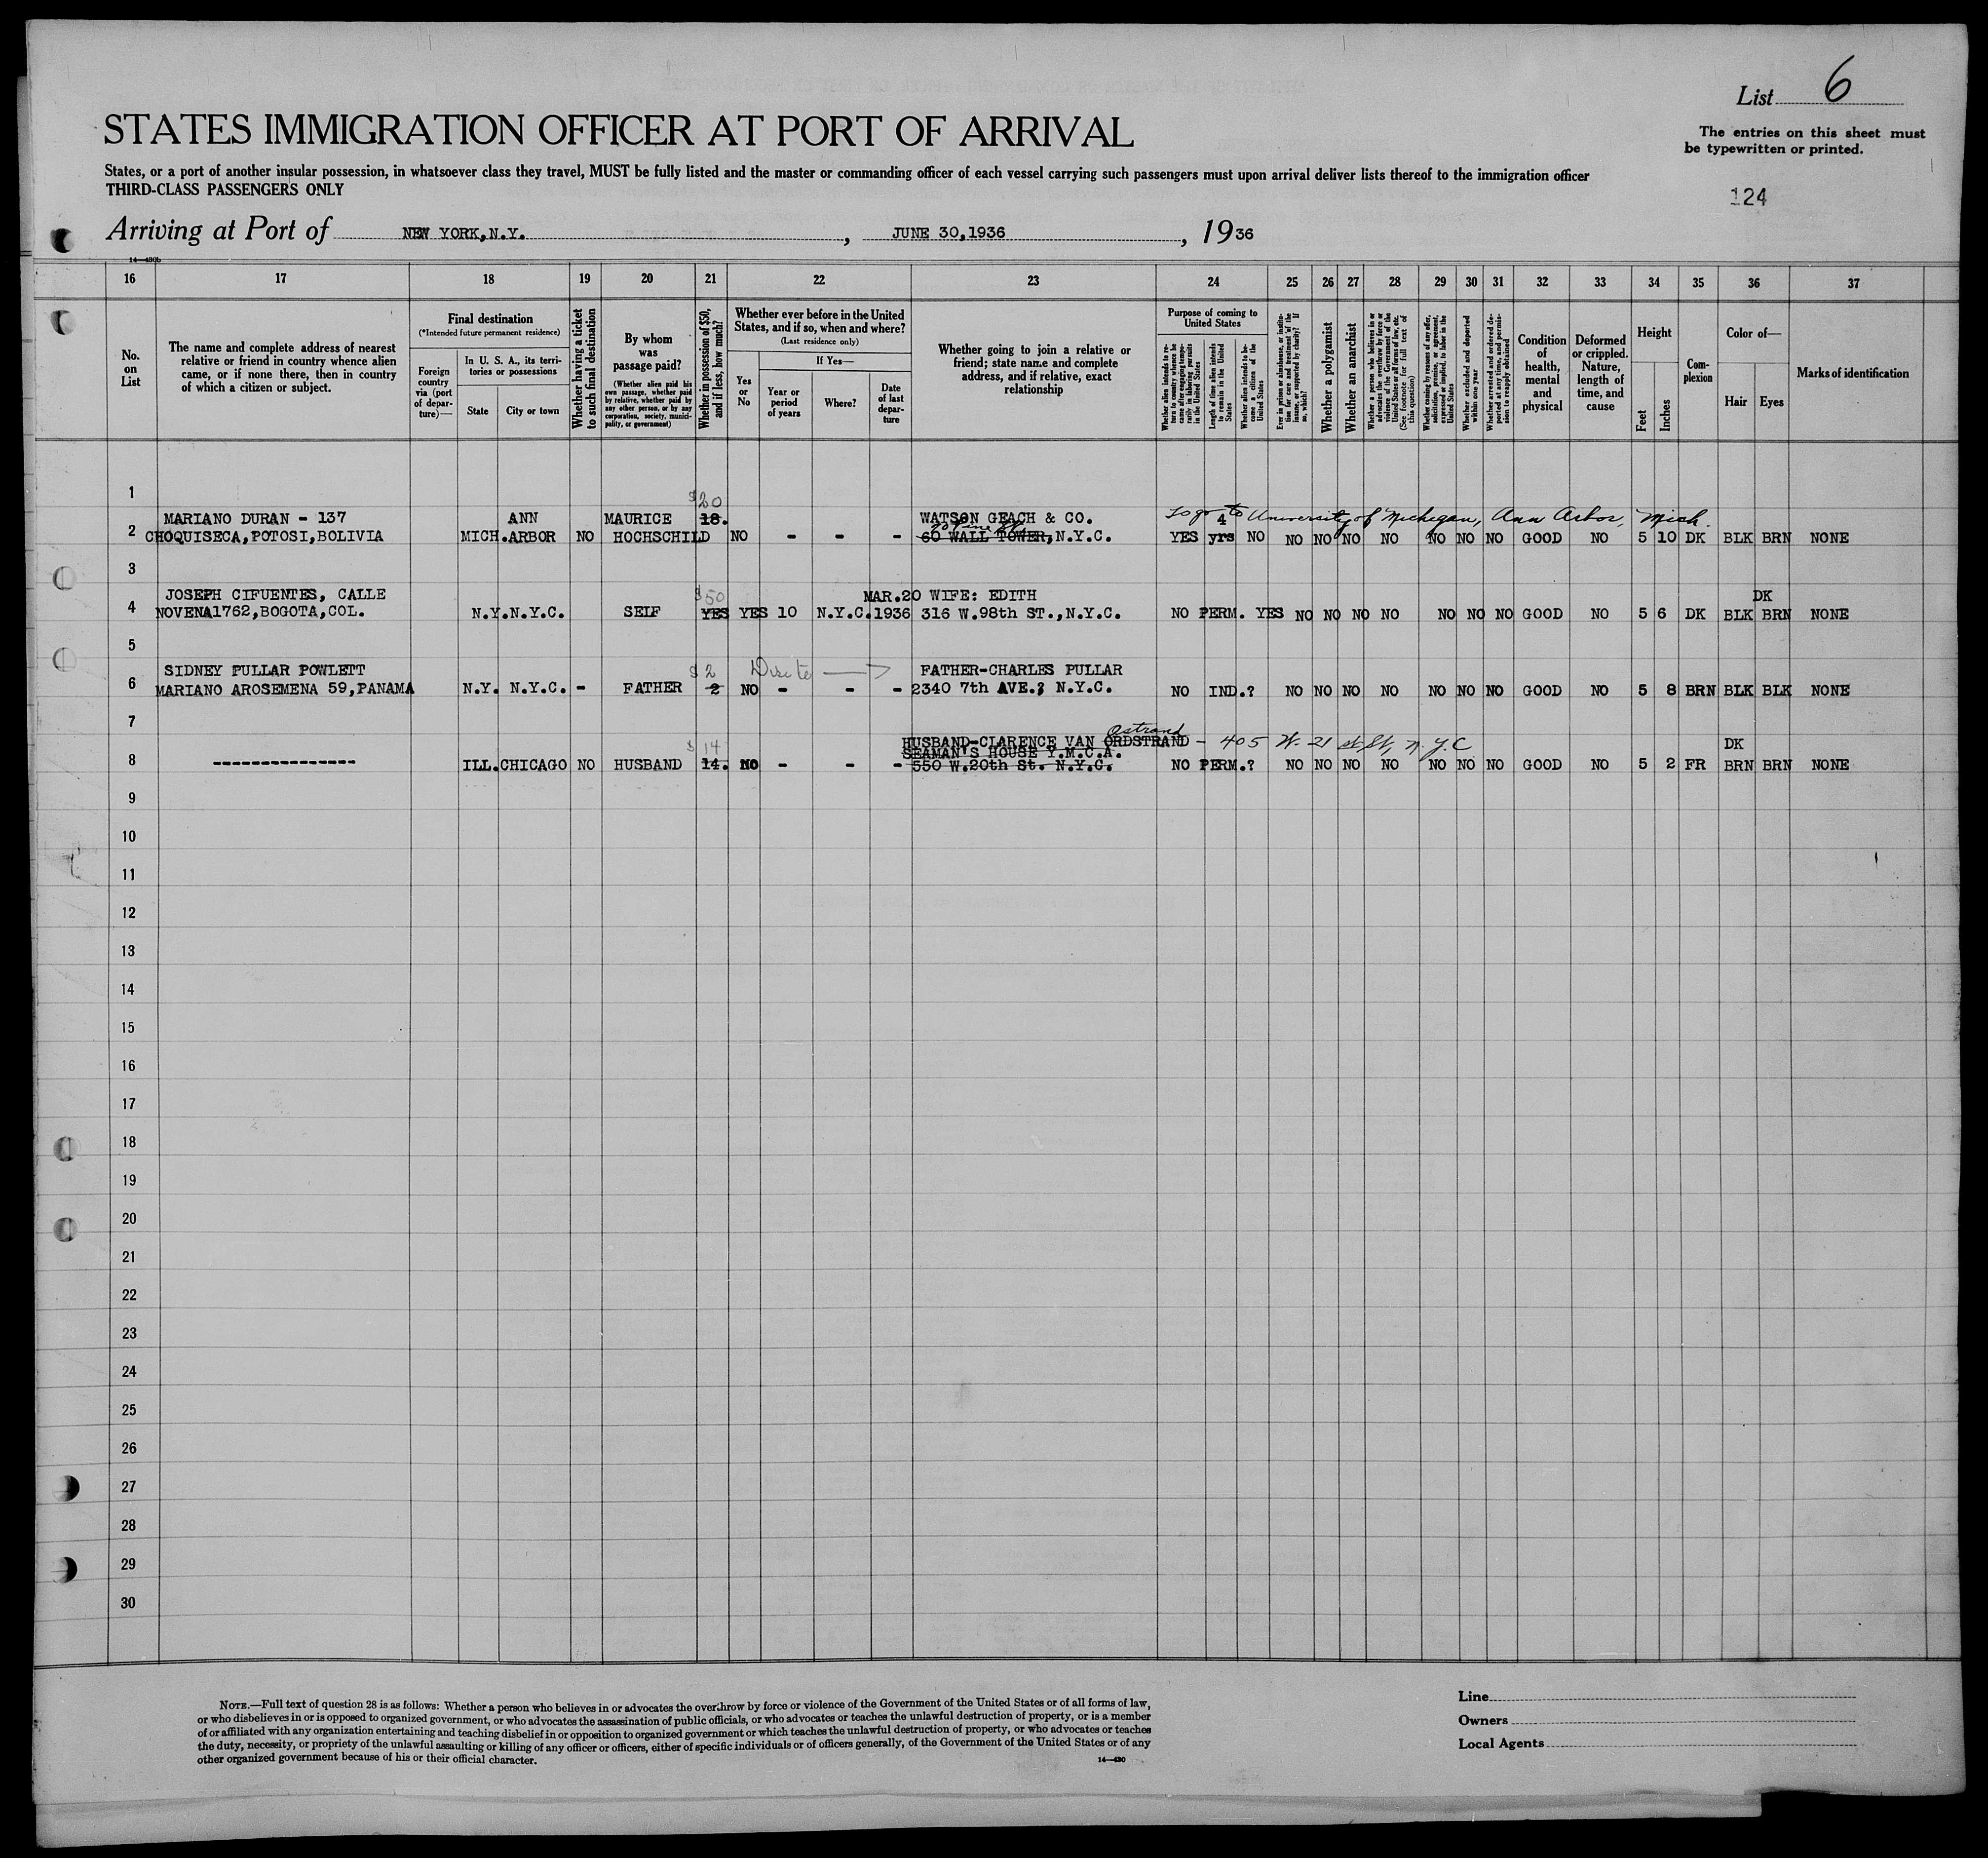 List 6
STATES IMMIGRATION OFFICER AT PORT OF ARRIVAL
The entries on this sheet must
be typewritten or printed.
States, or a port of another insular possession, in whatsoever class they travel, MUST be fully listed and the master or commanding officer of each vessel carrying such passengers must upon arrival deliver lists thereof to the immigration officer
THIRD-CLASS PASSENGERS ONLY
124
Arriving at Port of NEW YORK, N.Y. , JUNE 30, 1936 , 1936
14—430b
16 17 18 19 20 21 22 23 24 25 26 27 28 29 30 31 32 33 34 35 36 37
No. on List
The name and complete address of nearest relative or friend in country whence alien came, or if none there, then in country of which a citizen or subject.
Final destination
(*Intended future permanent residence)
Foreign country via (port of departure)—
In U. S. A., its territories or possessions
State
City or town
Whether having a ticket to such final destination
By whom was passage paid?
(Whether alien paid his own passage, whether paid by relative, whether paid by any other person, or by any corporation, society, municipality, or government)
Whether in possession of $50, and if less, how much?
Whether ever before in the United States, and if so, when and where?
(Last residence only)
Yes or No
If Yes—
Year or period of years
Where?
Date of last departure
Whether going to join a relative or friend; state name and complete address, and if relative, exact relationship
Purpose of coming to United States
Whether alien intends to return to country whence he came after engaging temporarily in laboring pursuits in the United States
Length of time alien intends to remain in the United States
Whether alien intends to become a citizen of the United States
Ever in prison or almshouse, or institution for care and treatment of the insane, or supported by charity? If so, which?
Whether a polygamist
Whether an anarchist
Whether a person who believes in or advocates the overthrow by force or violence of the Government of the United States or all forms of law, etc. (See footnote for full text of this question)
Whether coming by reasons of any offer, solicitation, promise, or agreement, expressed or implied, to labor in the United States
Whether excluded and deported within one year
Whether arrested and ordered deported at any time, and permission to reapply obtained
Condition of health, mental and physical
Deformed or crippled. Nature, length of time, and cause
Height
Feet
Inches
Complexion
Color of—
Hair
Eyes
Marks of identification
1
$20
MARIANO DURAN - 137 ANN MAURICE 18. WATSON GEACH & CO. To go to University of Michigan, Ann Arbor, Mich.
4
2 CHOQUISECA, POTOSI, BOLIVIA MICH. ARBOR NO HOCHSCHILD NO - - - 60 WALL TOWER, N.Y.C. YES yrs NO NO NO NO NO NO NO NO GOOD NO 5 10 DK BLK BRN NONE
3
JOSEPH CIFUENTES, CALLE $50 MAR.20 WIFE: EDITH DK
4 NOVENA 1762, BOGOTA, COL. N.Y. N.Y.C. SELF YES YES 10 N.Y.C. 1936 316 W.98th ST., N.Y.C. NO PERM. YES NO NO NO NO NO NO NO GOOD NO 5 6 DK BLK BRN NONE
5
SIDNEY PULLAR POWLETT $2 FATHER-CHARLES PULLAR
6 MARIANO AROSEMENA 59, PANAMA N.Y. N.Y.C. - FATHER 2 NO - - - 2340 7th AVE., N.Y.C. NO IND. ? NO NO NO NO NO NO NO GOOD NO 5 8 BRN BLK BLK NONE
7
Ostrand
$14 HUSBAND-CLARENCE VAN ORDSTRAND - 405 W. 21 st St, N.Y.C DK
SEAMAN'S HOUSE Y.M.C.A.
8 --------------- ILL. CHICAGO NO HUSBAND 14. NO - - - 550 W.20th St. N.Y.C. NO PERM. ? NO NO NO NO NO NO NO GOOD NO 5 2 FR BRN BRN NONE
9
10
11
12
13
14
15
16
17
18
19
20
21
22
23
24
25
26
27
28
29
30
NOTE.—Full text of question 28 is as follows: Whether a person who believes in or advocates the overthrow by force or violence of the Government of the United States or of all forms of law,
or who disbelieves in or is opposed to organized government, or who advocates the assassination of public officials, or who advocates or teaches the unlawful destruction of property, or is a member
of or affiliated with any organization entertaining and teaching disbelief in or opposition to organized government or which teaches the unlawful destruction of property, or who advocates or teaches
the duty, necessity, or propriety of the unlawful assaulting or killing of any officer or officers, either of specific individuals or of officers generally, of the Government of the United States or of any
other organized government because of his or their official character.
14—430
Line
Owners
Local Agents